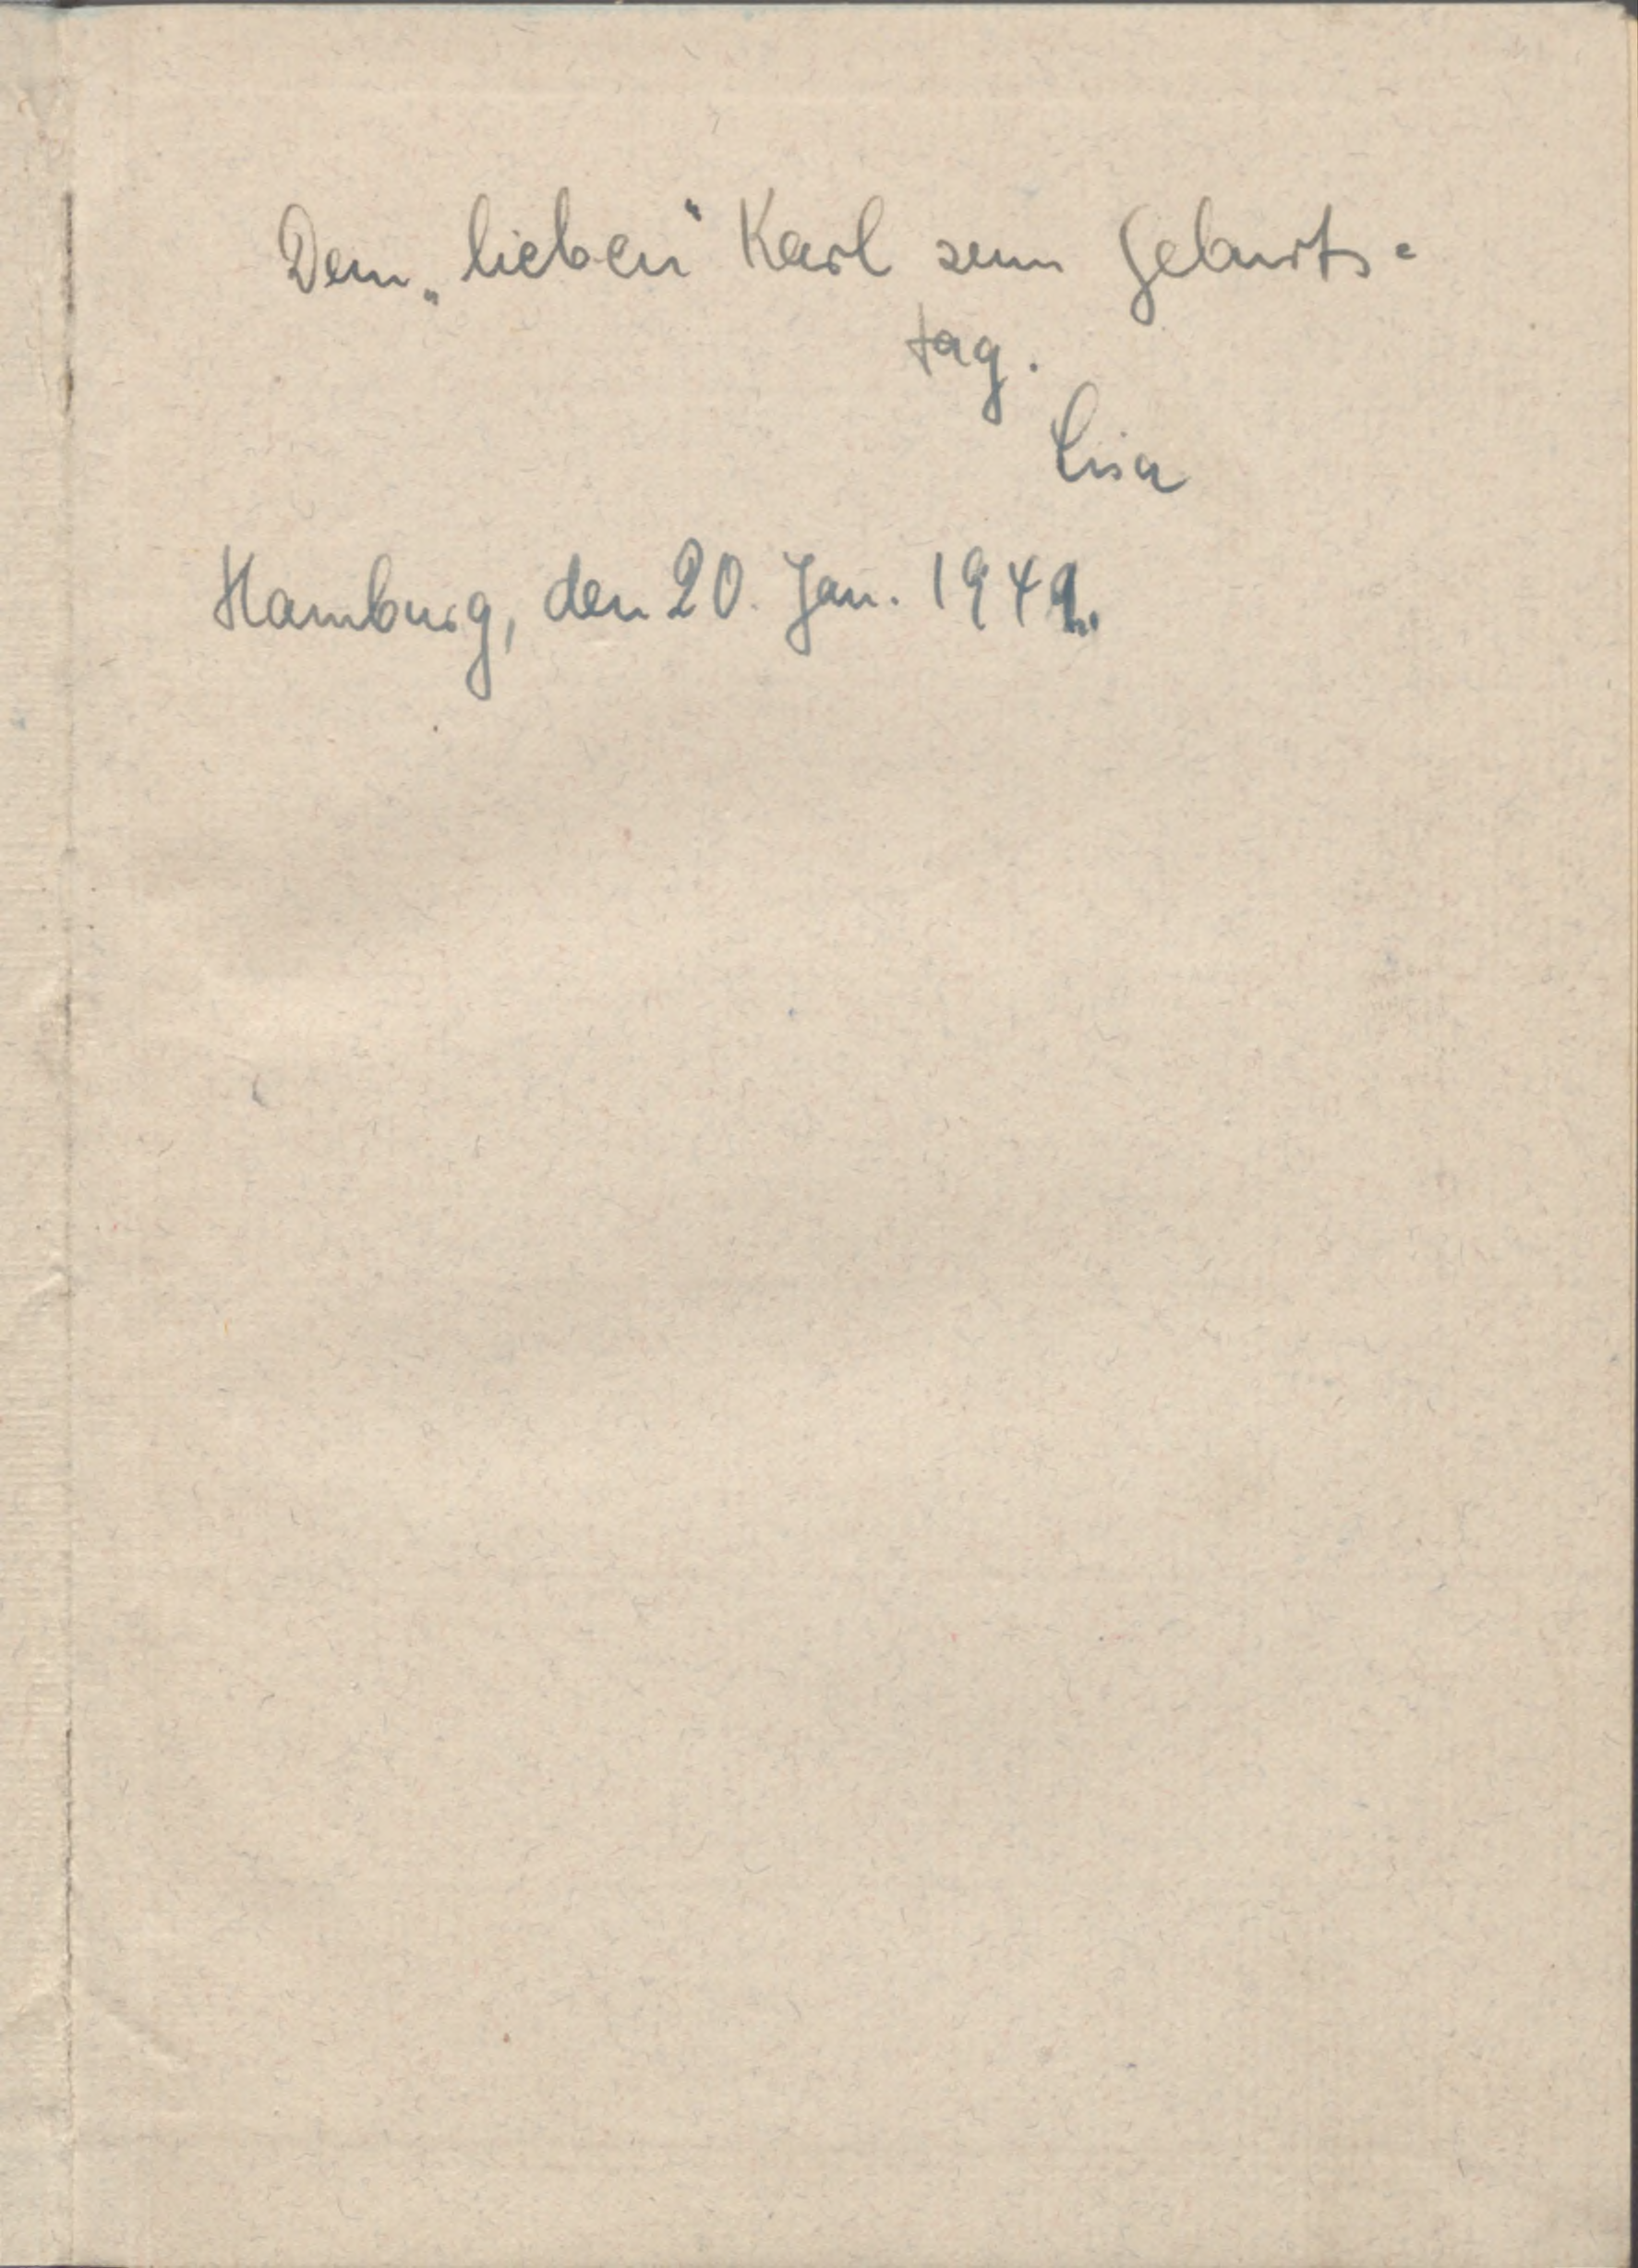 Dem „lieben“ Karl zum Geburts=
tag.
Lisa
Hamburg, den 20. Jan.